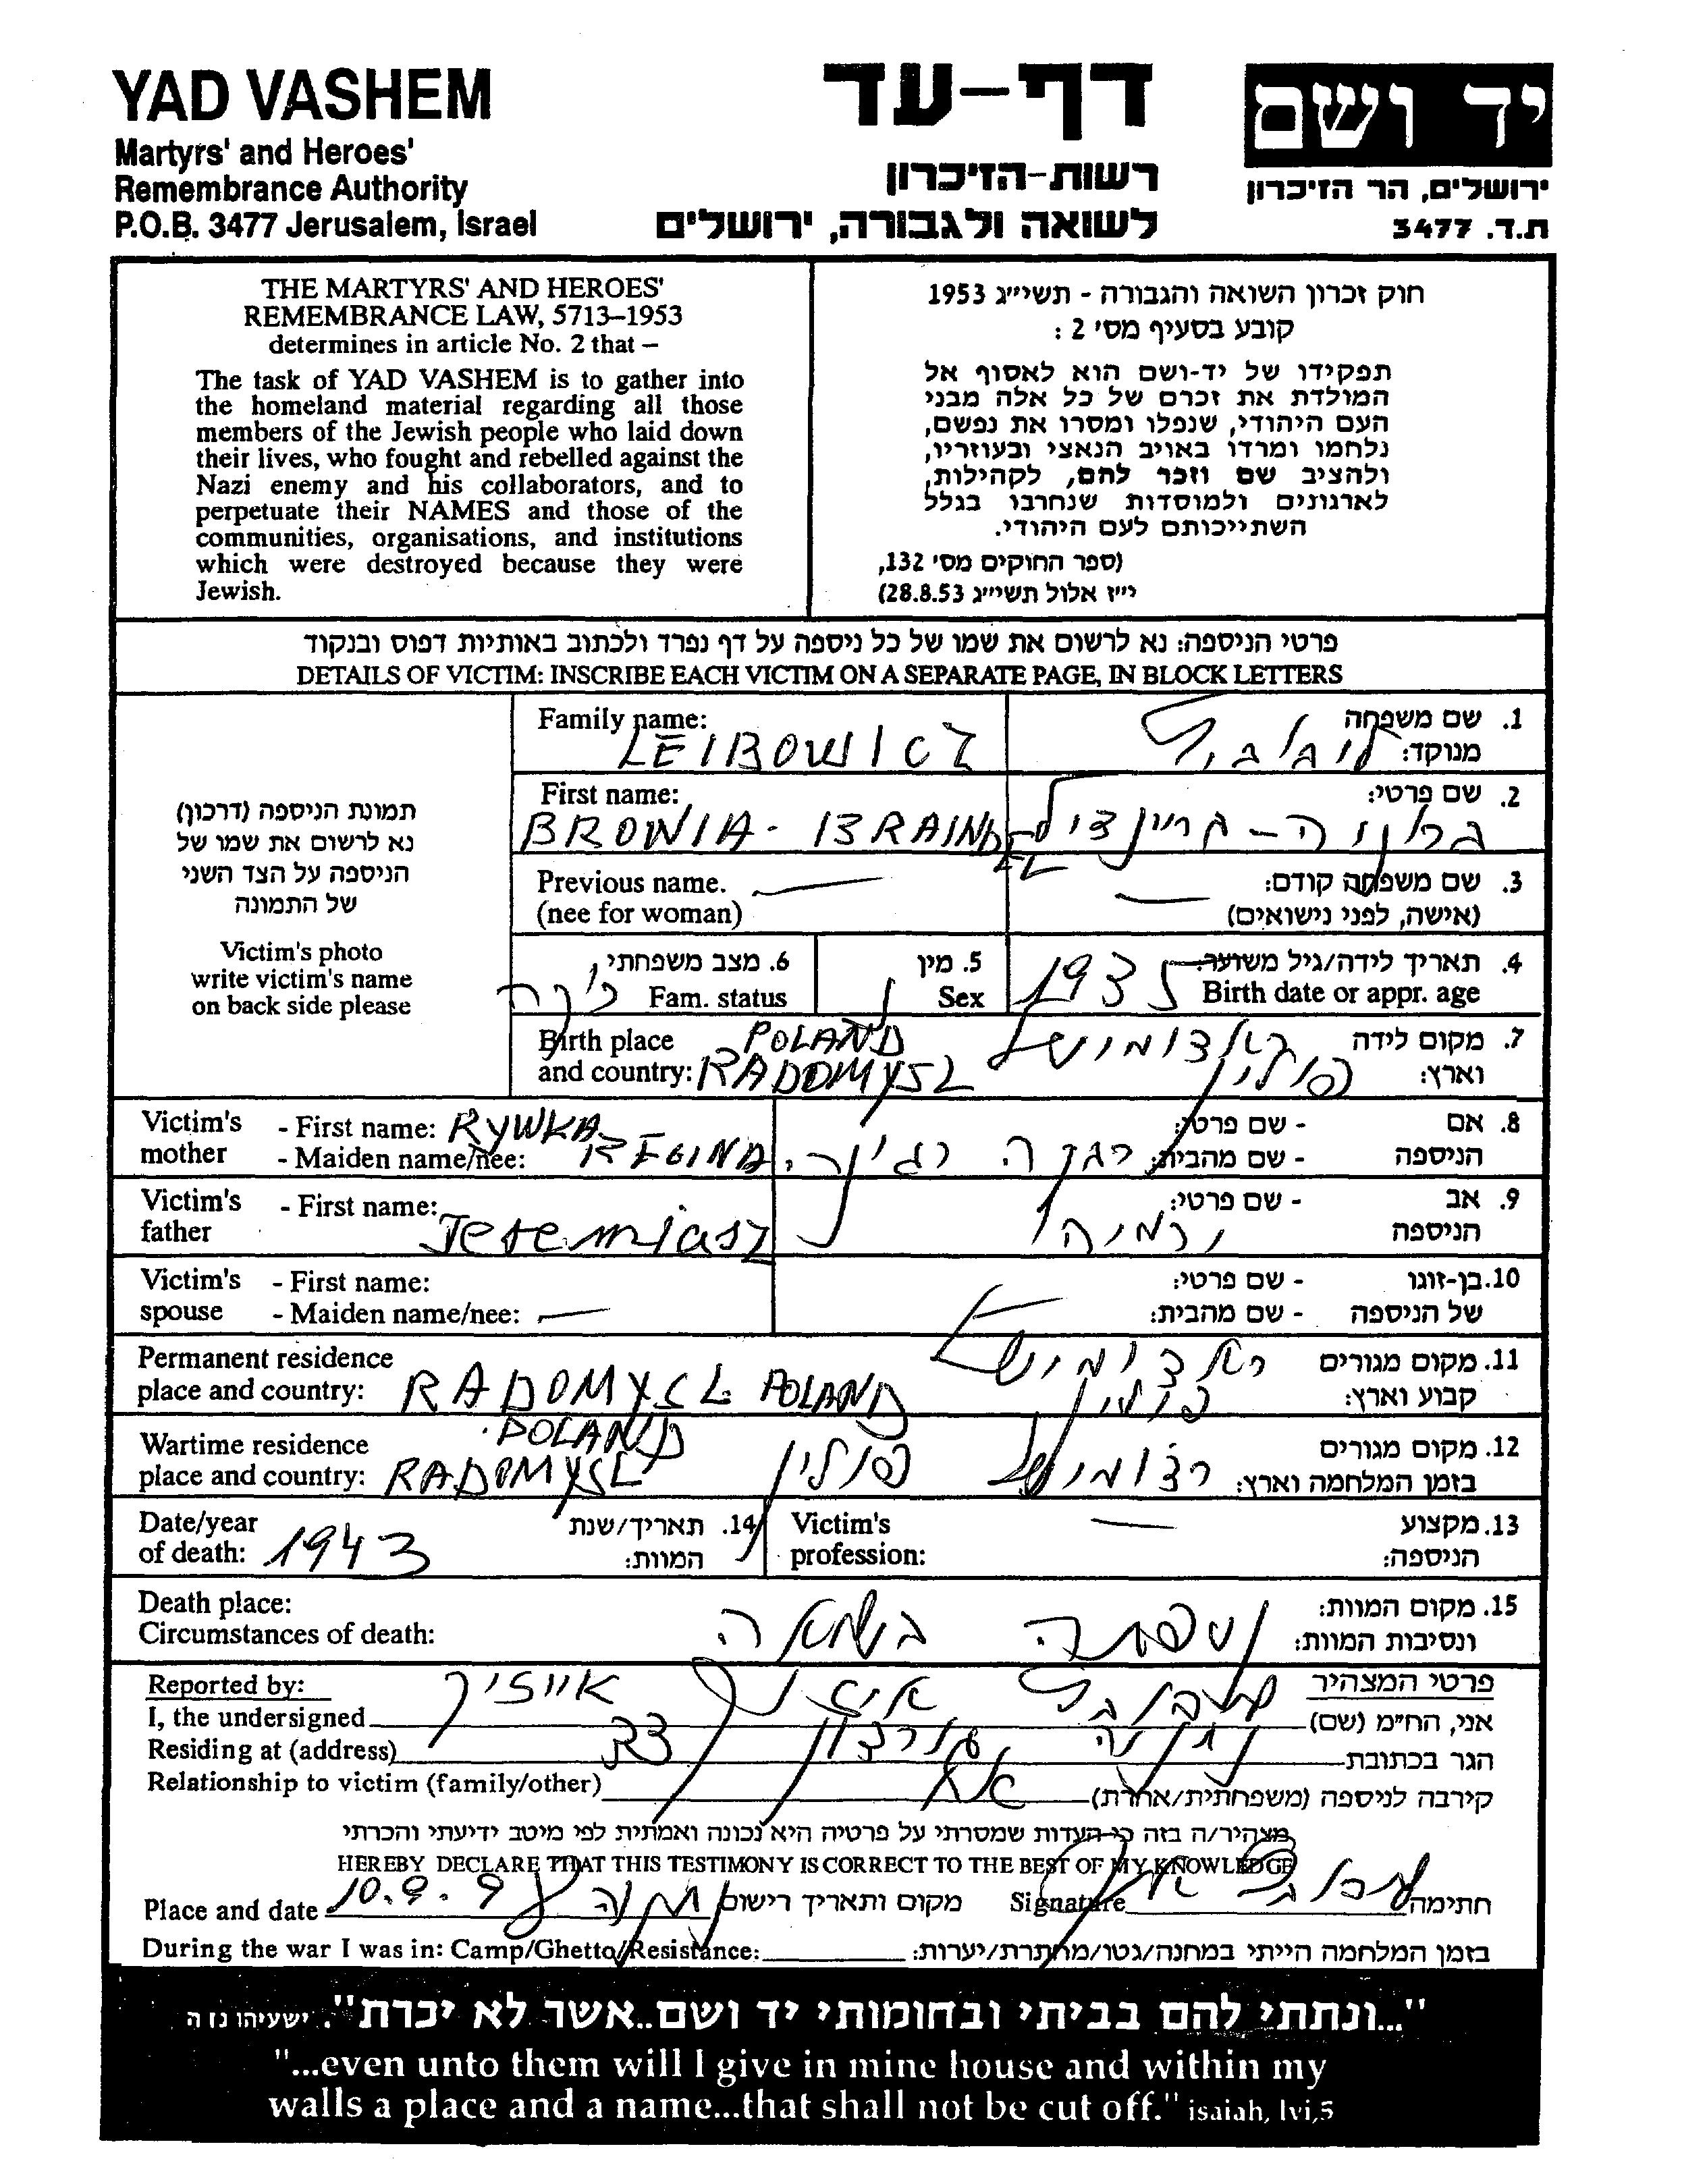 YAD VASHEM
Martyrs' and Heroes'
Remembrance Authority
P.O.B. 3477 Jerusalem, Israel
דף-עד
רשות-הזיכרון
לשואה ולגבורה, ירושלים
יד ושם
ירושלים, הר הזיכרון
ת.ד. 3477
THE MARTYRS' AND HEROES'
REMEMBRANCE LAW, 5713–1953
determines in article No. 2 that –
The task of YAD VASHEM is to gather into
the homeland material regarding all those
members of the Jewish people who laid down
their lives, who fought and rebelled against the
Nazi enemy and his collaborators, and to
perpetuate their NAMES and those of the
communities, organisations, and institutions
which were destroyed because they were
Jewish.
חוק זכרון השואה והגבורה - תשי״ג 1953
קובע בסעיף מס׳ 2 :
תפקידו של יד-ושם הוא לאסוף אל
המולדת את זכרם של כל אלה מבני
העם היהודי, שנפלו ומסרו את נפשם,
נלחמו ומרדו באויב הנאצי ובעוזריו,
ולהציב שם וזכר להם, לקהילות,
לארגונים ולמוסדות שנחרבו בגלל
השתייכותם לעם היהודי.
(ספר החוקים מס׳ 132,
י״ז אלול תשי״ג 28.8.53)
פרטי הניספה: נא לרשום את שמו של כל ניספה על דף נפרד ולכתוב באותיות דפוס ובנקוד
DETAILS OF VICTIM: INSCRIBE EACH VICTIM ON A SEPARATE PAGE, IN BLOCK LETTERS
תמונת הניספה (דרכון)
נא לרשום את שמו של
הניספה על הצד השני
של התמונה
Victim's photo
write victim's name
on back side please
Family name: LEIBOWICZ
1. שם משפחה
מנוקד: לייבוביץ
First name: BROWIA - BRAINDEL
2. שם פרטי: ברוניה - בריינדיל
Previous name. —
(nee for woman)
3. שם משפחה קודם: —
(אישה, לפני נישואים)
4. תאריך לידה/גיל משוער
Birth date or appr. age 1935
5. מין
Sex
6. מצב משפחתי
Fam. status
Birth place POLAND
and country: RADOMYSL
7. מקום לידה ראדומישל
וארץ: פולין
Victim's mother
- First name: RYWKA
- Maiden name/nee: REGINA
8. אם הניספה
- שם פרטי:
- שם מהבית: רבקה רגינה
Victim's father
- First name: Jeremiasz
9. אב הניספה
- שם פרטי: ירמיהו
Victim's spouse
- First name:
- Maiden name/nee: —
10. בן-זוגו של הניספה
- שם פרטי:
- שם מהבית:
Permanent residence
place and country: RADOMYSL POLAND
11. מקום מגורים ראדומישל
קבוע וארץ: פולין
Wartime residence POLAND
place and country: RADOMYSL
12. מקום מגורים
בזמן המלחמה וארץ: רדומישל פולין
Date/year
of death: 1943
14. תאריך/שנת
המוות:
Victim's
profession:
13. מקצוע —
הניספה:
Death place:
Circumstances of death:
15. מקום המוות:
ונסיבות המוות: נספתה בשואה
Reported by:
פרטי המצהיר
I, the undersigned
אני, הח״מ (שם) לייבוביץ אייזיק
Residing at (address)
הגר בכתובת 33
Relationship to victim (family/other)
קירבה לניספה (משפחתית/אחרת) אח
מצהיר/ה בזה כי העדות שמסרתי על פרטיה היא נכונה ואמתית לפי מיטב ידיעתי והכרתי
HEREBY DECLARE THAT THIS TESTIMONY IS CORRECT TO THE BEST OF MY KNOWLEDGE
Place and date 10.9.98
מקום ותאריך רישום
Signature
חתימה
During the war I was in: Camp/Ghetto/Resistance:
בזמן המלחמה הייתי במחנה/גטו/מחתרת/יערות:
"...ונתתי להם בביתי ובחומותי יד ושם..אשר לא יכרת". ישעיהו נו ה
"...even unto them will I give in mine house and within my
walls a place and a name...that shall not be cut off." isaiah, lvi,5